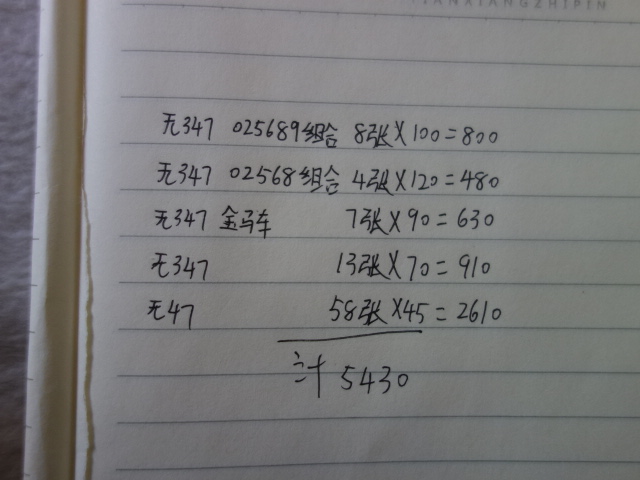 TIANXIANGZHIPIN
无347 025689组合 8张×100=800
无347 02568组合 4张×120=480
无347 金马车 7张×90=630
无347 13张×70=910
无47 58张×45=2610
计 5430